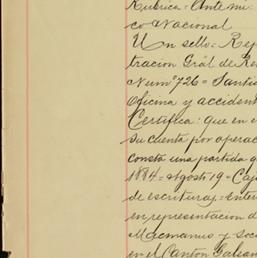 Rubrica = Ante mi:
co Nacional
Un sello = Re
tracion Gral de Re
Num° 726 = Santi
Oficina y accident
Certifica: que en e
su cuenta por opera
consta una partida q
1884 = Agosto 19 = Caj
de escrituras = Inter
en representacion d
Macmanus y Soc
en el Canton Galean